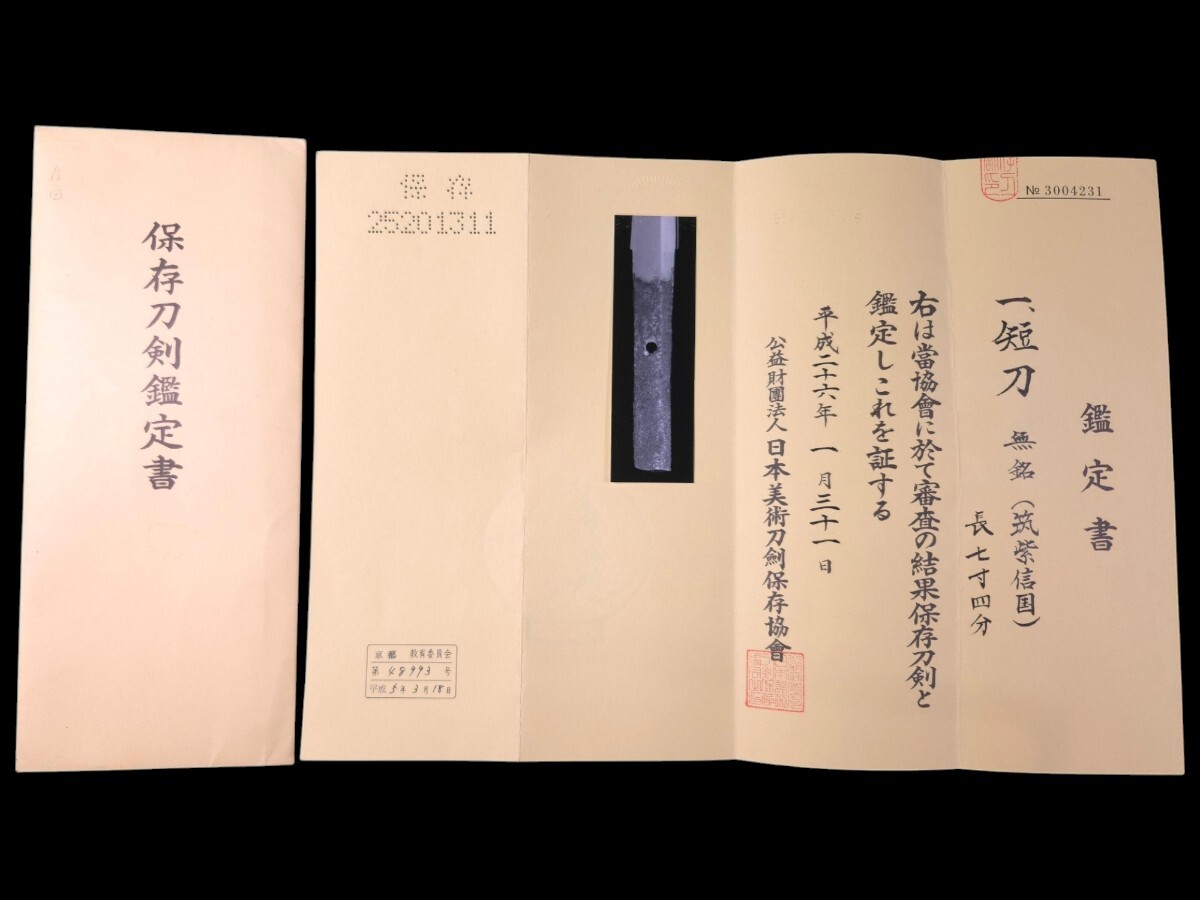 保存刀剣鑑定書
№ 3004231
鑑定書
一、短刀 無銘(筑紫信国)
長七寸四分
右は當協會に於て審査の結果保存刀剣と
鑑定しこれを証する
平成二十六年 一月三十一日
公益財團法人日本美術刀劍保存協會
保存
25201311
京都 教育委員会
第 48993 号
平成 5年 3月 18日